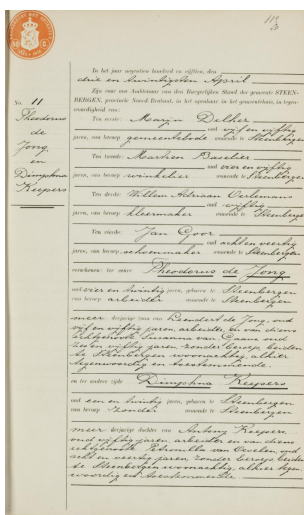 No. 11
Theodorus
de
Jong
en
Dimphna
Keijsers
In het jaar negentien honderd en vijftien, den
drie en twintigsten April
Zijn voor ons Ambtenaar van den Burgerlijken Stand der gemeente STEEN-
BERGEN, provincie Noord Braband, in het openbaar in het gemeentehuis, in tegen-
woordigheid van:
Ten eerste: Marijn Delher
oud vijf en vijftig
jaren, van beroep gemeentebode wonende te Steenbergen
Ten tweede: Marthen Baselier
oud vier en vijftig
jaren, van beroep winkelier wonende te Steenbergen
Ten derde: Willem Adriaan Oerlemans
oud vijftig
jaren, van beroep kleermaker wonende te Steenbergen
Ten vierde: Jan Goor
oud acht en veertig
jaren, van beroep schoenmaker wonende te Steenbergen
verschenen: ter eenre Theodorus de Jong
oud vier en twintig jaren, geboren te Steenbergen
van beroep arbeider wonende te Steenbergen
meerderjarige zoon van Leendert de Jong, oud
vijf en vijftig jaren, arbeider, en van diens
echtgenoote Susanna van Gaans, oud
zes en vijftig jaren, zonder beroep, beiden
te Steenbergen woonachtig, alhier
tegenwoordig en toestemmende.
en ter andere zijde Dimphna Keijsers
oud een en twintig jaren, geboren te Steenbergen
van beroep zonder wonende te Steenbergen
meerderjarige dochter van Antonij Keijsers,
oud vijftig jaren, arbeider en van diens
echtgenoote Petronella van Oeselen, oud
acht en veertig jaren, zonder beroep, beiden
te Steenbergen woonachtig, alhier tegen-
woordig en toestemmende